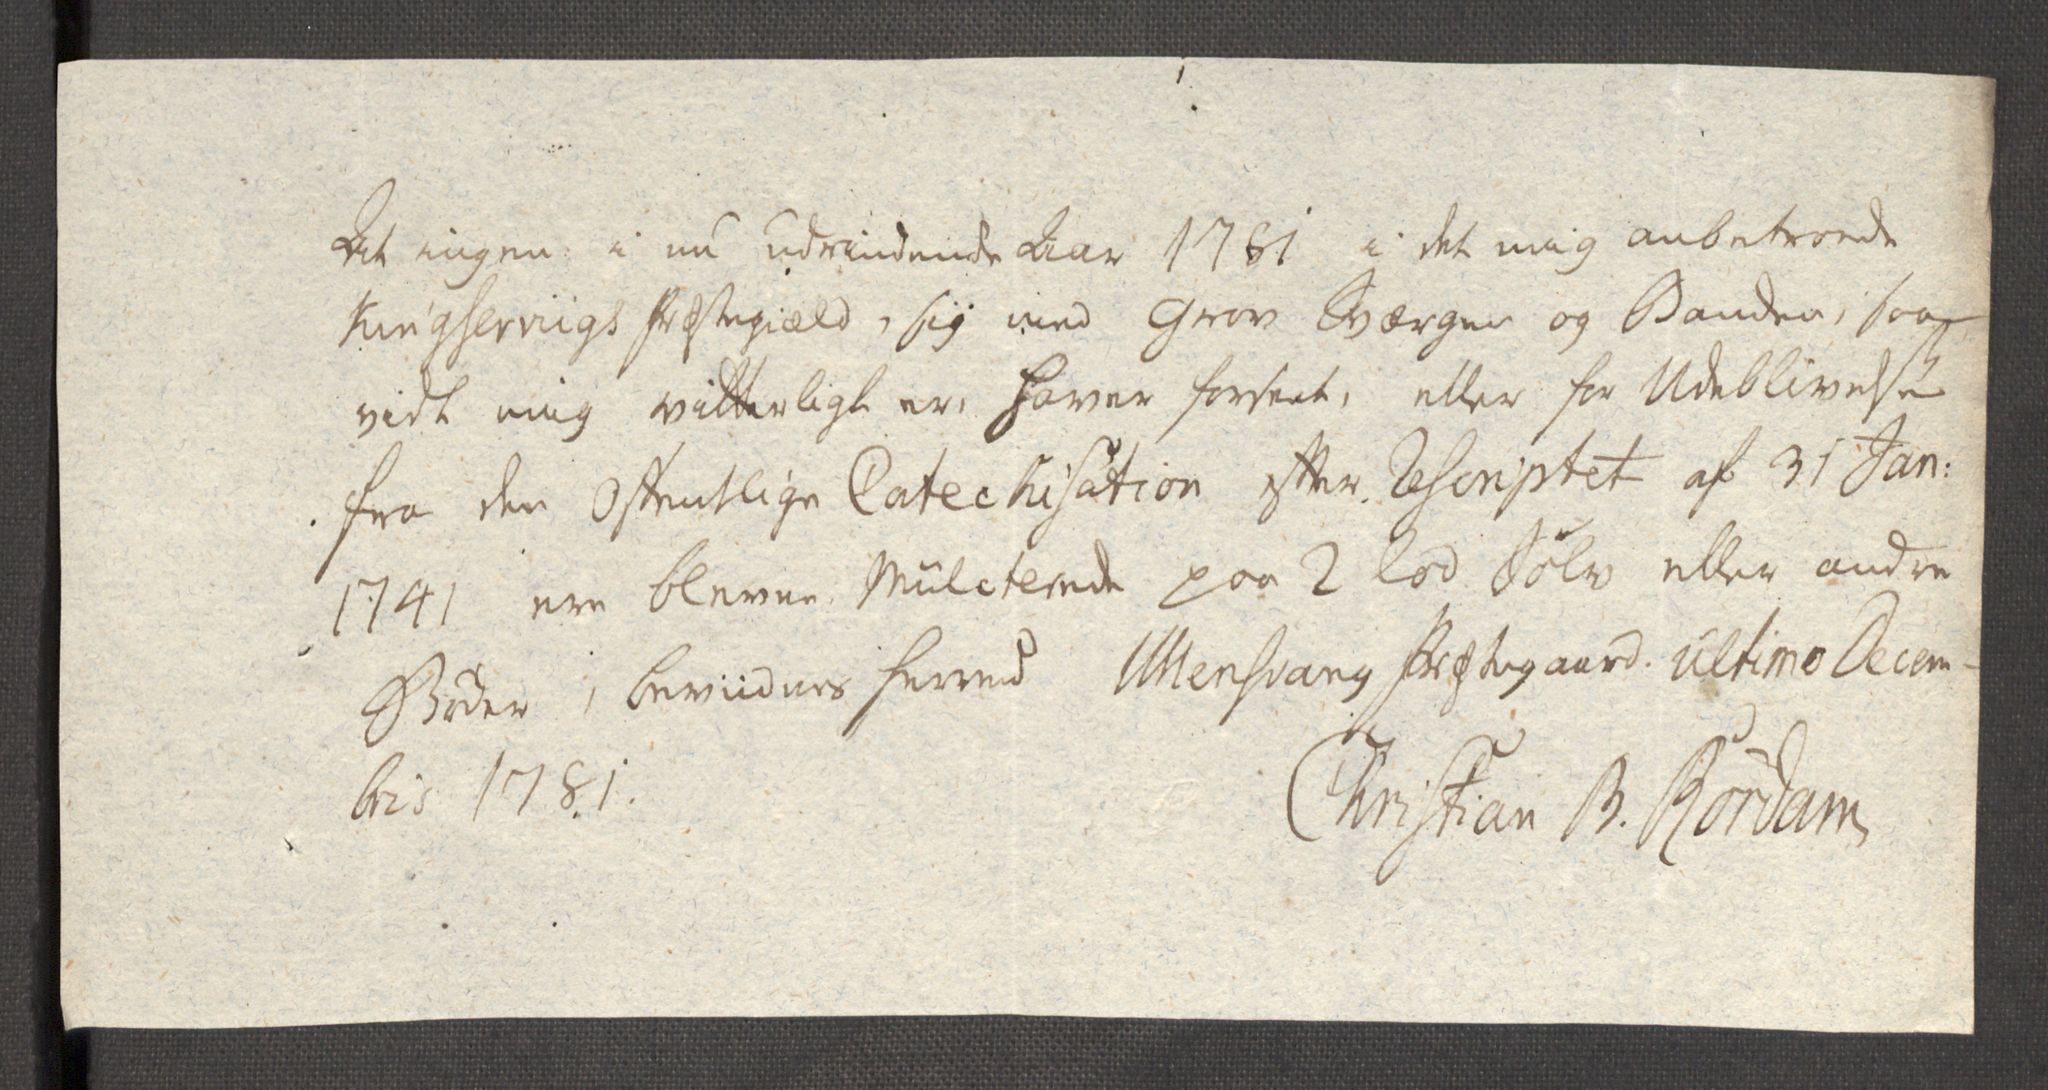 At ingen i nu udrindende Aar 1781 i det mig anbetroede
Kingservigs Præstegiæld, sig med Grov Sværgen og Banden, saa
vidt mig vitterligt er, haver forseet, eller for Udeblivelse
fra den Offentlige Catechisation efter Rescriptet af 31 Jan:
1741 ere blevne Mülcterede paa 2 Lod Sölv eller andre
Bøder, beviidnes herved Ullensvang Præstegaard. ültimo Decem-
bris 1781.
Christian B. Rördam